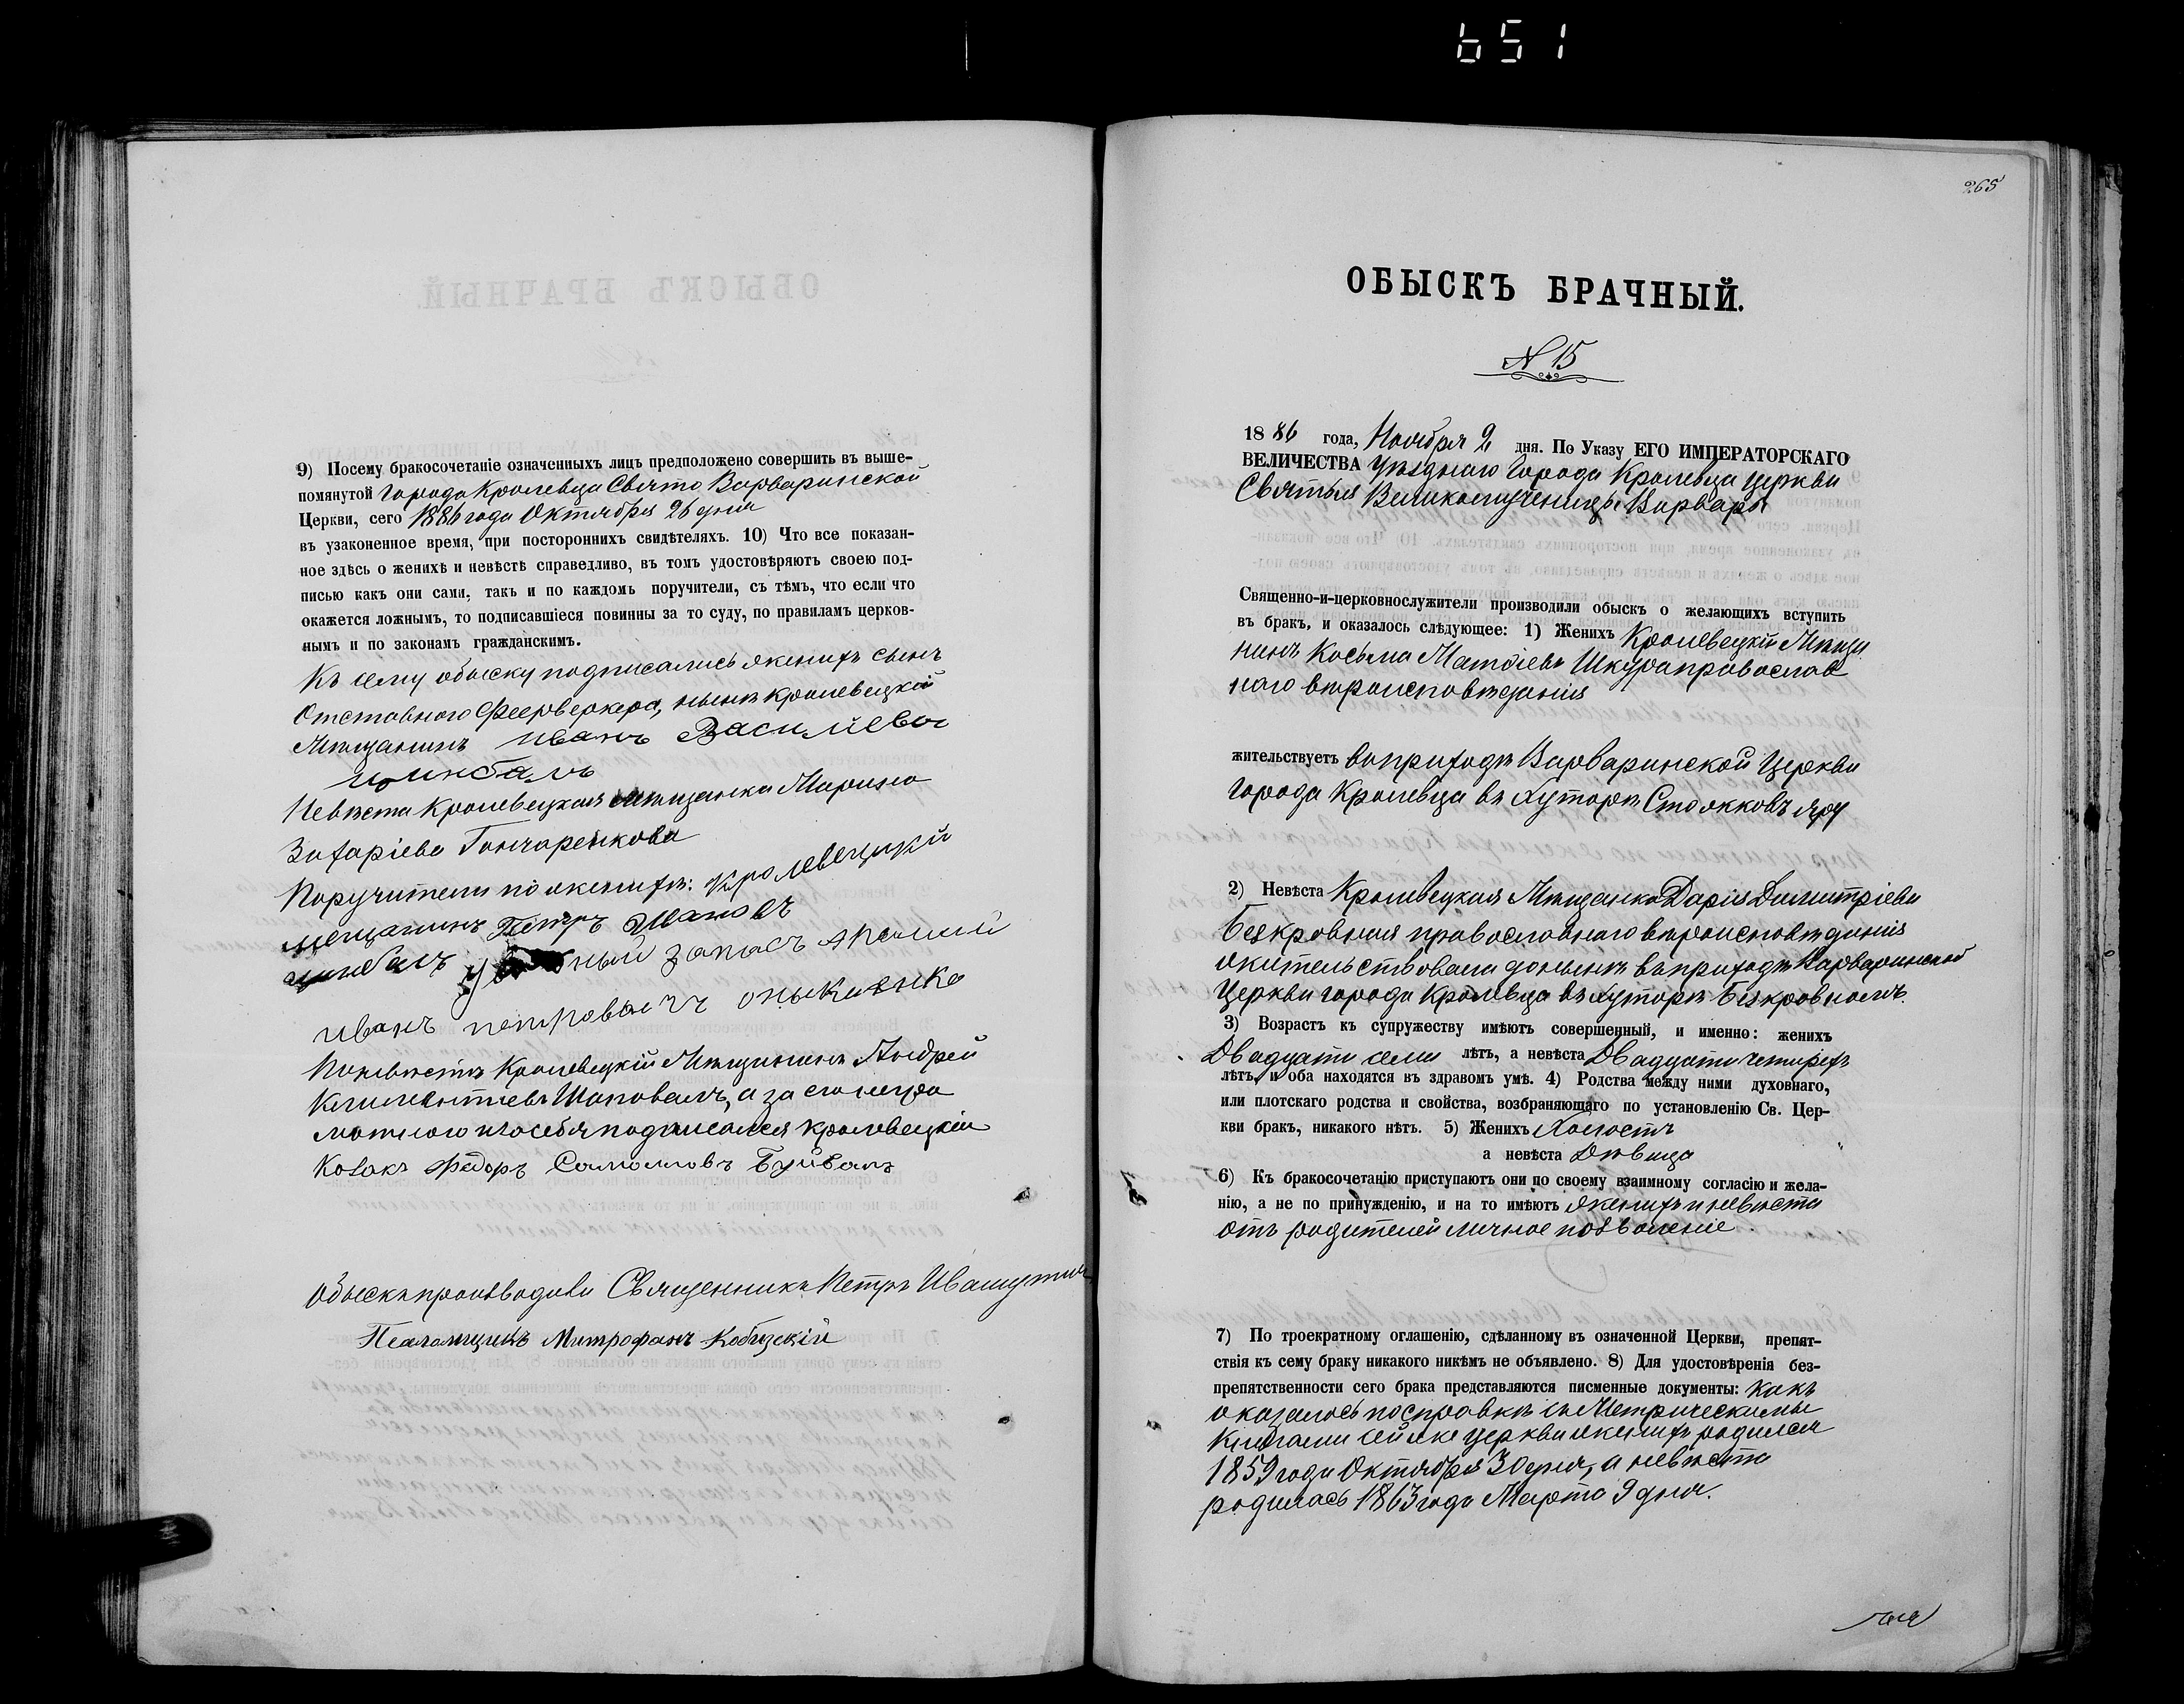 651
9) Посему бракосочетаніе означенныхъ лицъ предположено совершить въ выше-
помянутой Города Кролевца Свято Варваринской
Церкви, сего 1886 года Октября 26 дня
въ узаконенное время, при постороннихъ свидѣтеляхъ. 10) Что все показан-
ное здѣсь о женихѣ и невѣстѣ справедливо, въ томъ удостовѣряютъ своею под-
писью какъ они сами, такъ и по каждомъ поручители, съ тѣмъ, что если что
окажется ложнымъ, то подписавшіеся повинны за то суду, по правиламъ церков-
нымъ и по законамъ гражданскимъ.
Къ сему обыску подписались женихъ сынъ
Отставного Феерверкера, нынѣ кролевецкій
Мѣщанинъ иванъ Василйевъ
цимбалъ
Невѣста Кролевецкая мѣщанка Марина
Захаріева Гончаренкова
Поручители по женихѣ: Кролевецкій
мещанинъ Петръ Ивановъ
цимбалъ запасъ арміи
иванъ петровичъ
По невѣстѣ Кролевецкій Мѣщанинъ Андрей
Климентіевъ Шаповалъ, а за его негра
мотного и за себя подписался кролевецкій
Козакъ Федоръ Самойловъ
Обыскъ производили Священникъ Петръ
Псаломщикъ Митрофанъ
265
ОБЫСКЪ БРАЧНЫЙ.
N 15
1886 года, Ноября 2 дня. По Указу ЕГО ИМПЕРАТОРСКАГО
ВЕЛИЧЕСТВА Уѣзднаго Города Кролевца церкви
Святыя Великомученицы Варвары
Священно-и-церковнослужители производили обыскъ о желающихъ вступить
въ бракъ, и оказалось слѣдующее: 1) Женихъ Кролевецкій Мѣща
нинъ Косьма Матѳіевъ Шкура православ
наго вѣроисповѣданія
жительствуетъ въ приходѣ Варваринской Церкви
города Кролевца въ Хуторѣ Яру
2) Невѣста Кролевецкая Мѣщанка Дарія Димитріева
Безкровная православнаго вѣроисповѣданія
жительствовала донынѣ въ приходѣ Варваринской
Церкви города Кролевца въ Хуторѣ Безкровномъ.
3) Возрастъ къ супружеству имѣютъ совершенный, и именно: женихъ
Двадцати семи лѣтъ, а невѣста Двадцати четырехъ
лѣтъ, и оба находятся въ здравомъ умѣ. 4) Родства между ними духовнаго,
или плотскаго родства и свойства, возбраняющаго по установленію Св. Цер-
кви бракъ, никакого нѣтъ. 5) Женихъ Холостъ
а невѣста Дѣвица
6) Къ бракосочетанію приступаютъ они по своему взаимному согласію и жела-
нію, а не по принужденію, и на то имѣютъ женихъ и невѣста
отъ родителей личное позволеніе
7) По троекратному оглашенію, сдѣланному въ означенной Церкви, препят-
ствія къ сему браку никакого никѣмъ не объявлено. 8) Для удостовѣренія без-
препятственности сего брака представляются писменные документы: какъ
оказалось по справкѣ съ Метрическими
Книгами сей же церкви женихъ родился
1859 года Октября 30 дня, а невѣста
родилась 1863 года Марта 9 дня.